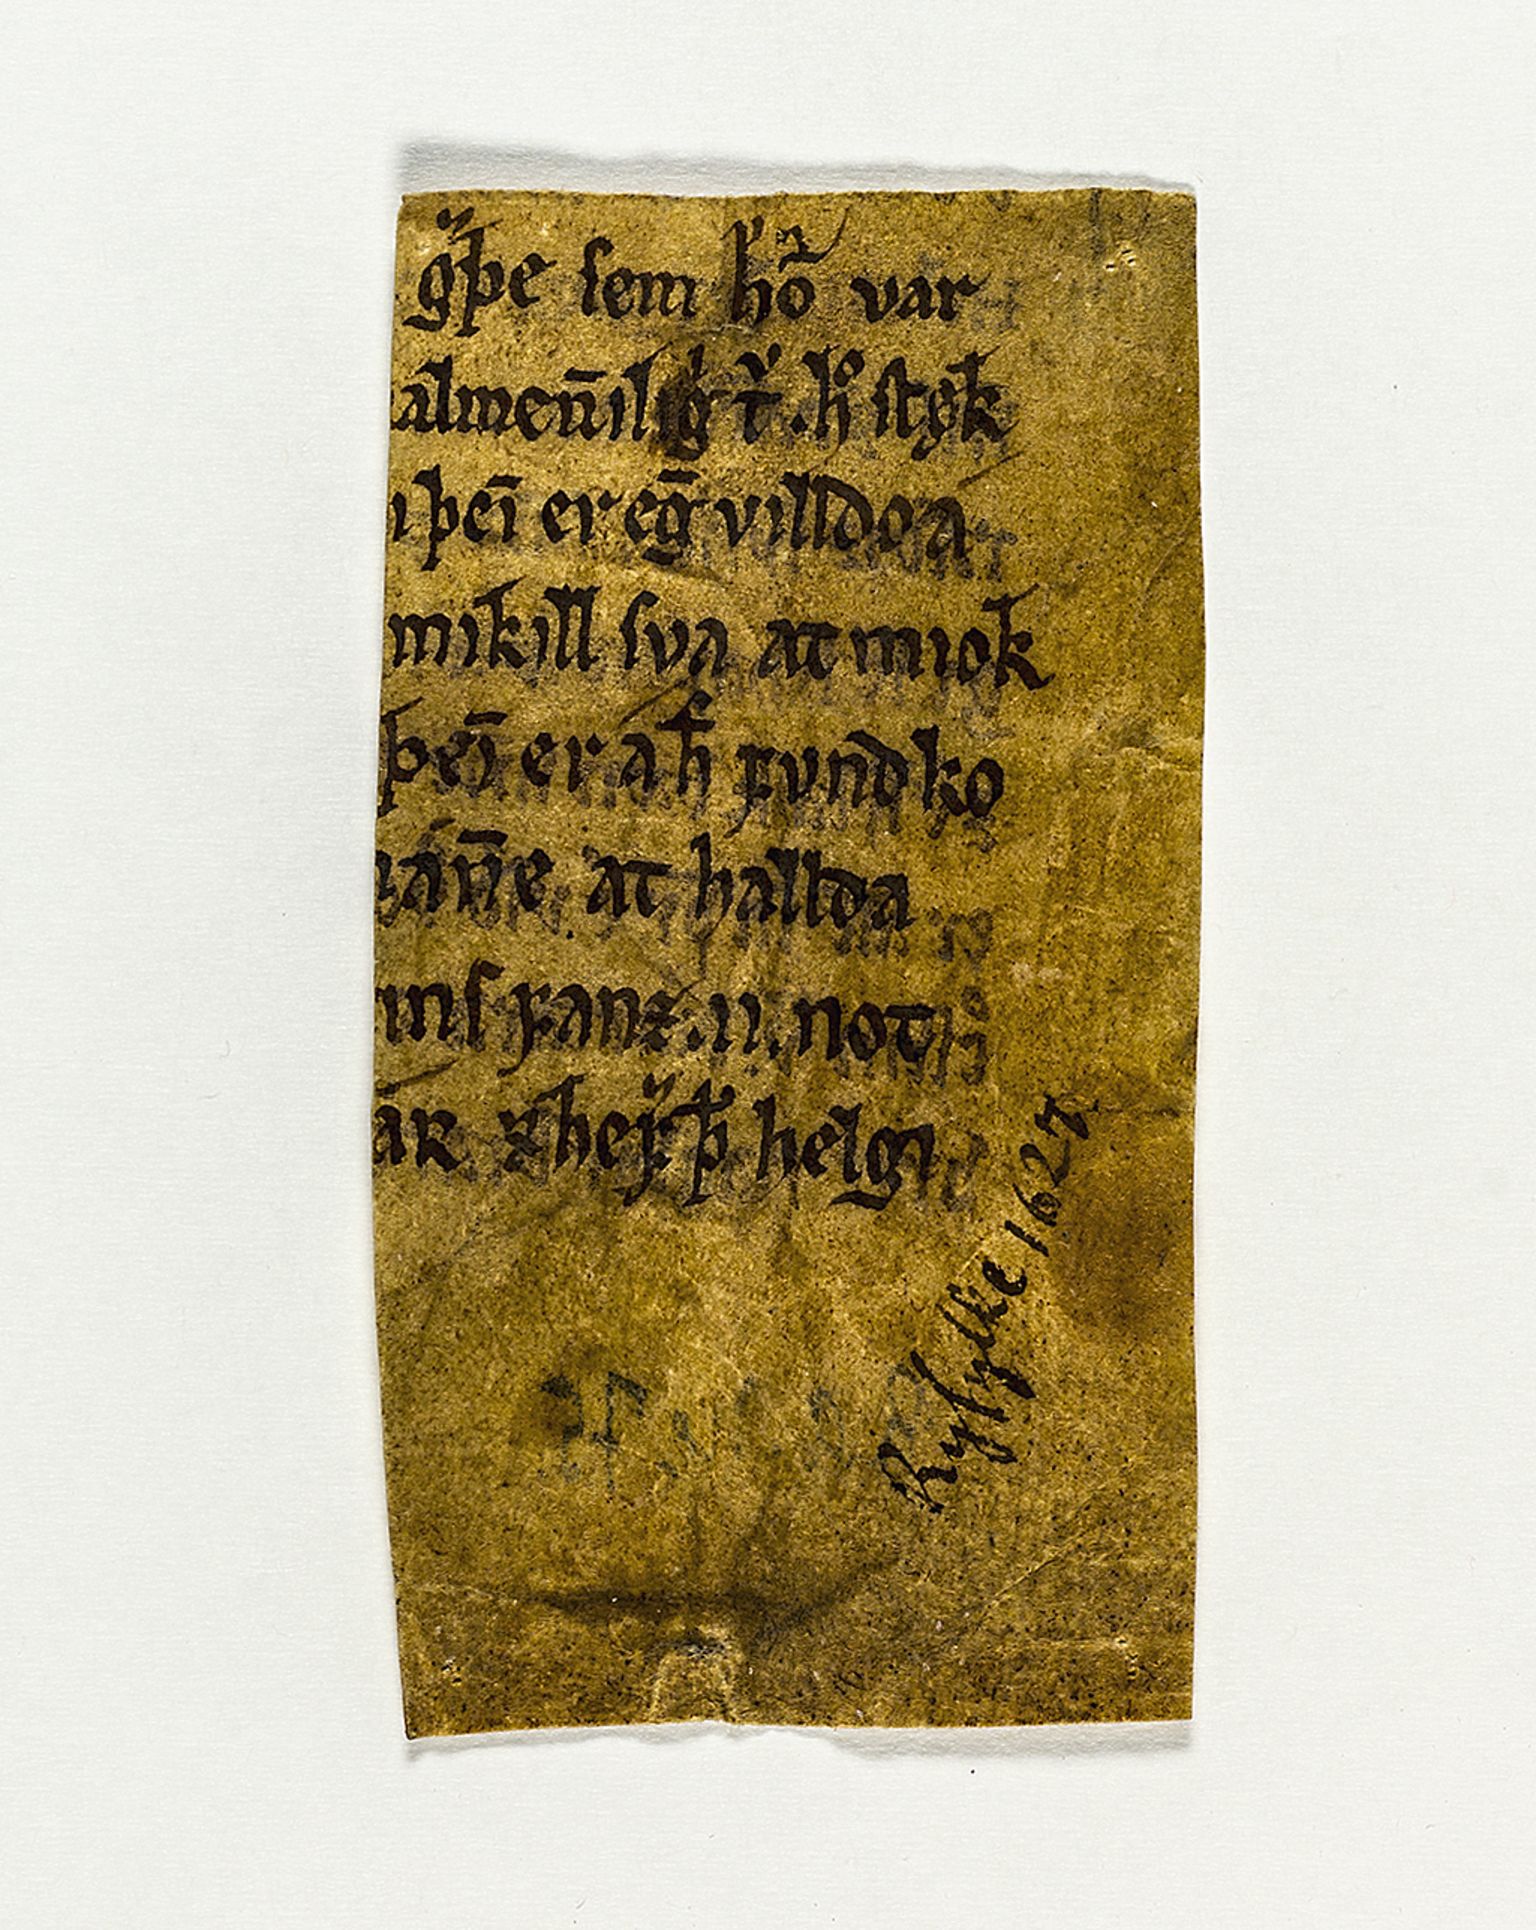 gͮþe sem hō var
almen̄ilıgͥ
þeı̄ er eḡ villdo a
mikill sva at miok
þeı̄ er a ħ fund ko
án̄e at hallda
ins fanz .ii. not
ar helgi
Ryfylke 1627